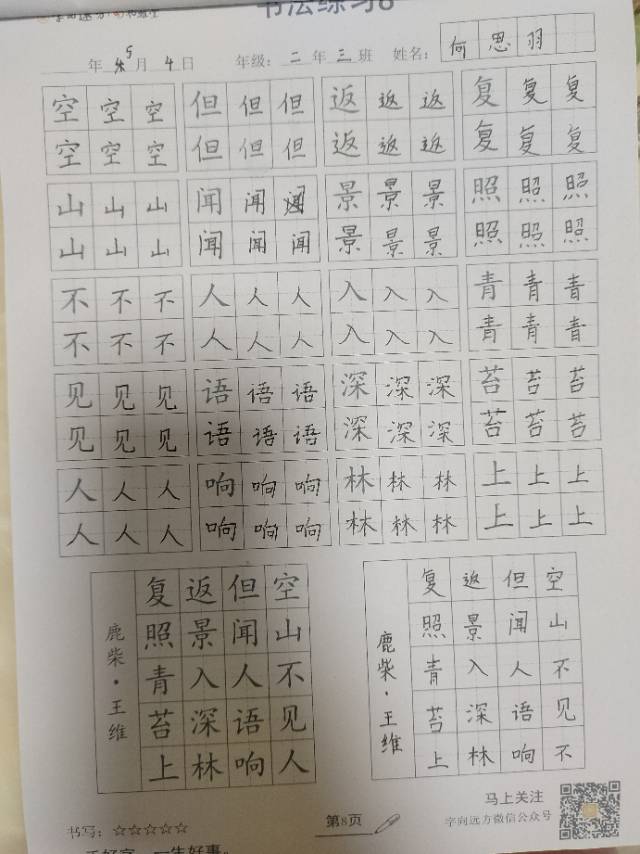 书法练习8
年 5月 4日 年级：二年三班 姓名：何思羽
空空空 但但但 返返返 复复复
空空空 但但但 返返返 复复复
山山山 闻闻闻 景景景 照照照
山山山 闻闻闻 景景景 照照照
不不不 人人人 入入入 青青青
不不不 人人人 入入入 青青青
见见见 语语语 深深深 苔苔苔
见见见 语语语 深深深 苔苔苔
人人人 响响响 林林林 上上上
人人人 响响响 林林林 上上上
空山不见人
但闻人语响
返景入深林
复照青苔上
鹿柴·王维
空山不见不
但闻人语响
返景入深林
复照青苔上
鹿柴·王维
书写：☆☆☆☆☆
第8页
马上关注
字向远方微信公众号
手好字，一生好事。